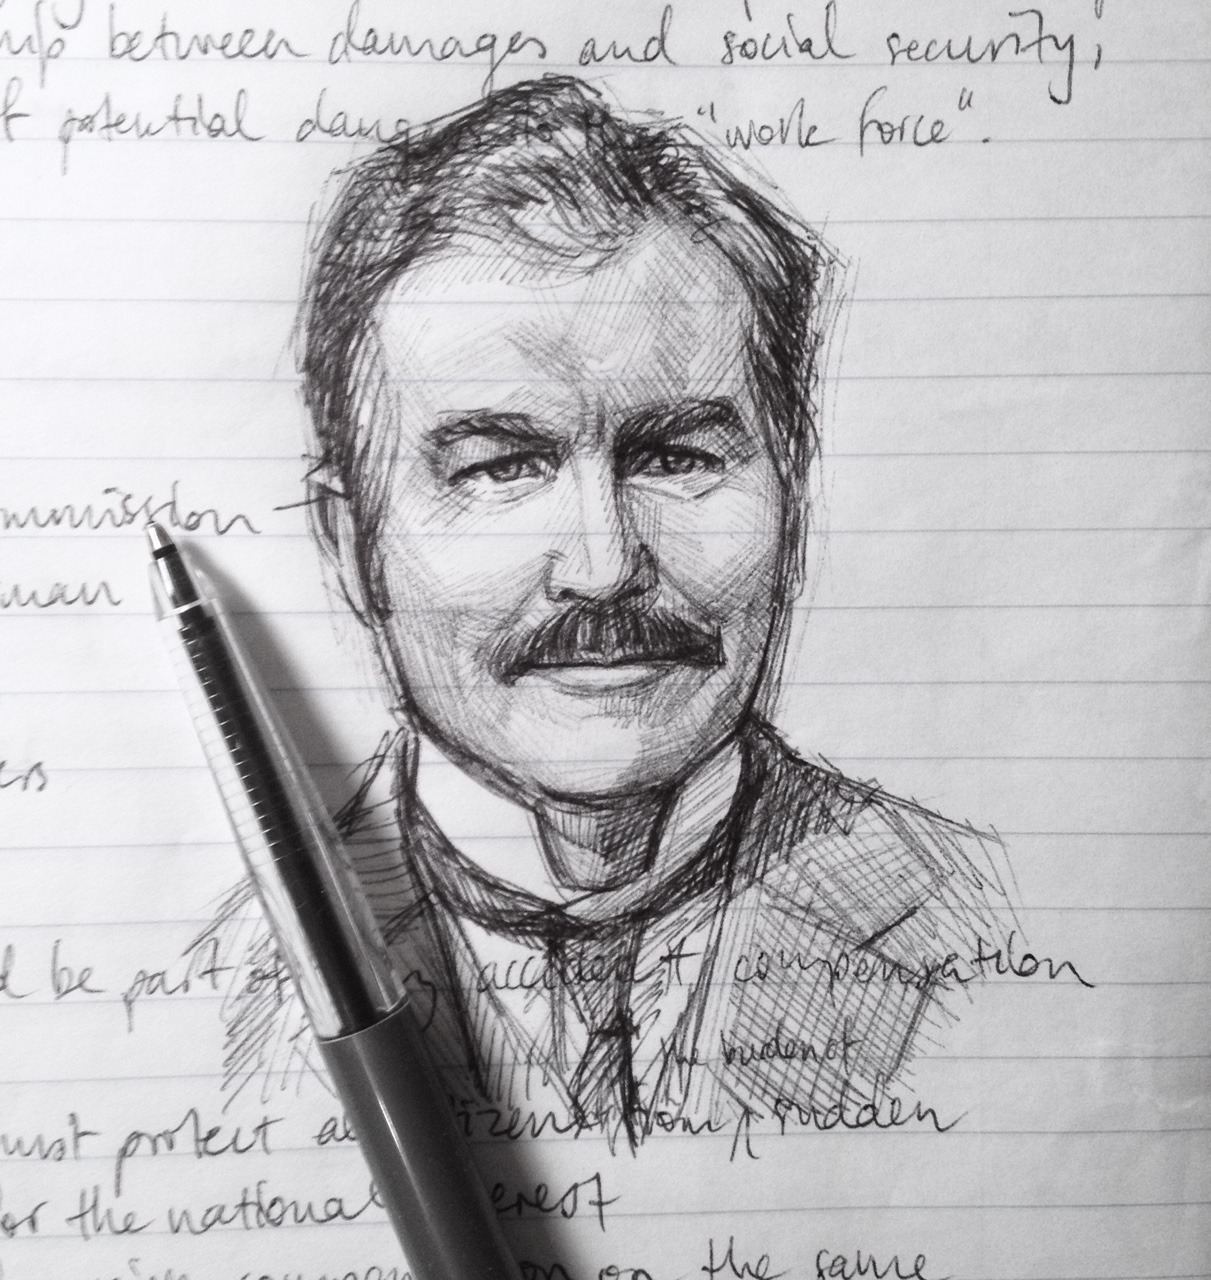 between damages and social security,
potential dang "work force".
mmission
man
ers
be part of accident compensation
the burden of
ust protect from sudden
or the national erest
on the same